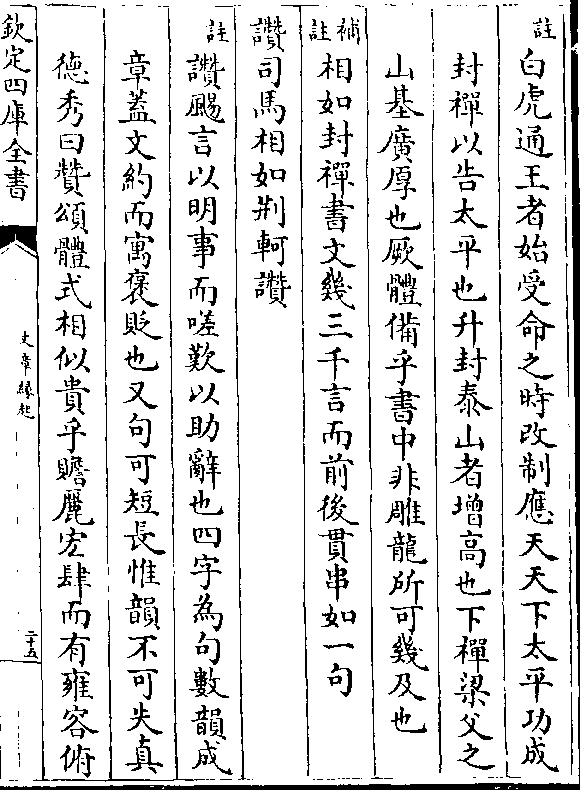 註白虎通王者始受命之時改制應天天下太平功成
封禪以告太平也升封泰山者增高也下禪梁父之
山基廣厚也厥體備乎書中非雕龍所可幾及也
補註相如封禪書文幾三千言而前後貫串如一句
讚司馬相如荆軻讚
註讚颺言以明事而嗟歎以助辭也四字為句數韻成
章蓋文約而寓褒貶也又句可短長惟韻不可失真
德秀曰贊頌體式相似貴乎贍麗宏肆而有雍容俯
欽定四庫全書
文章緣起
二十五